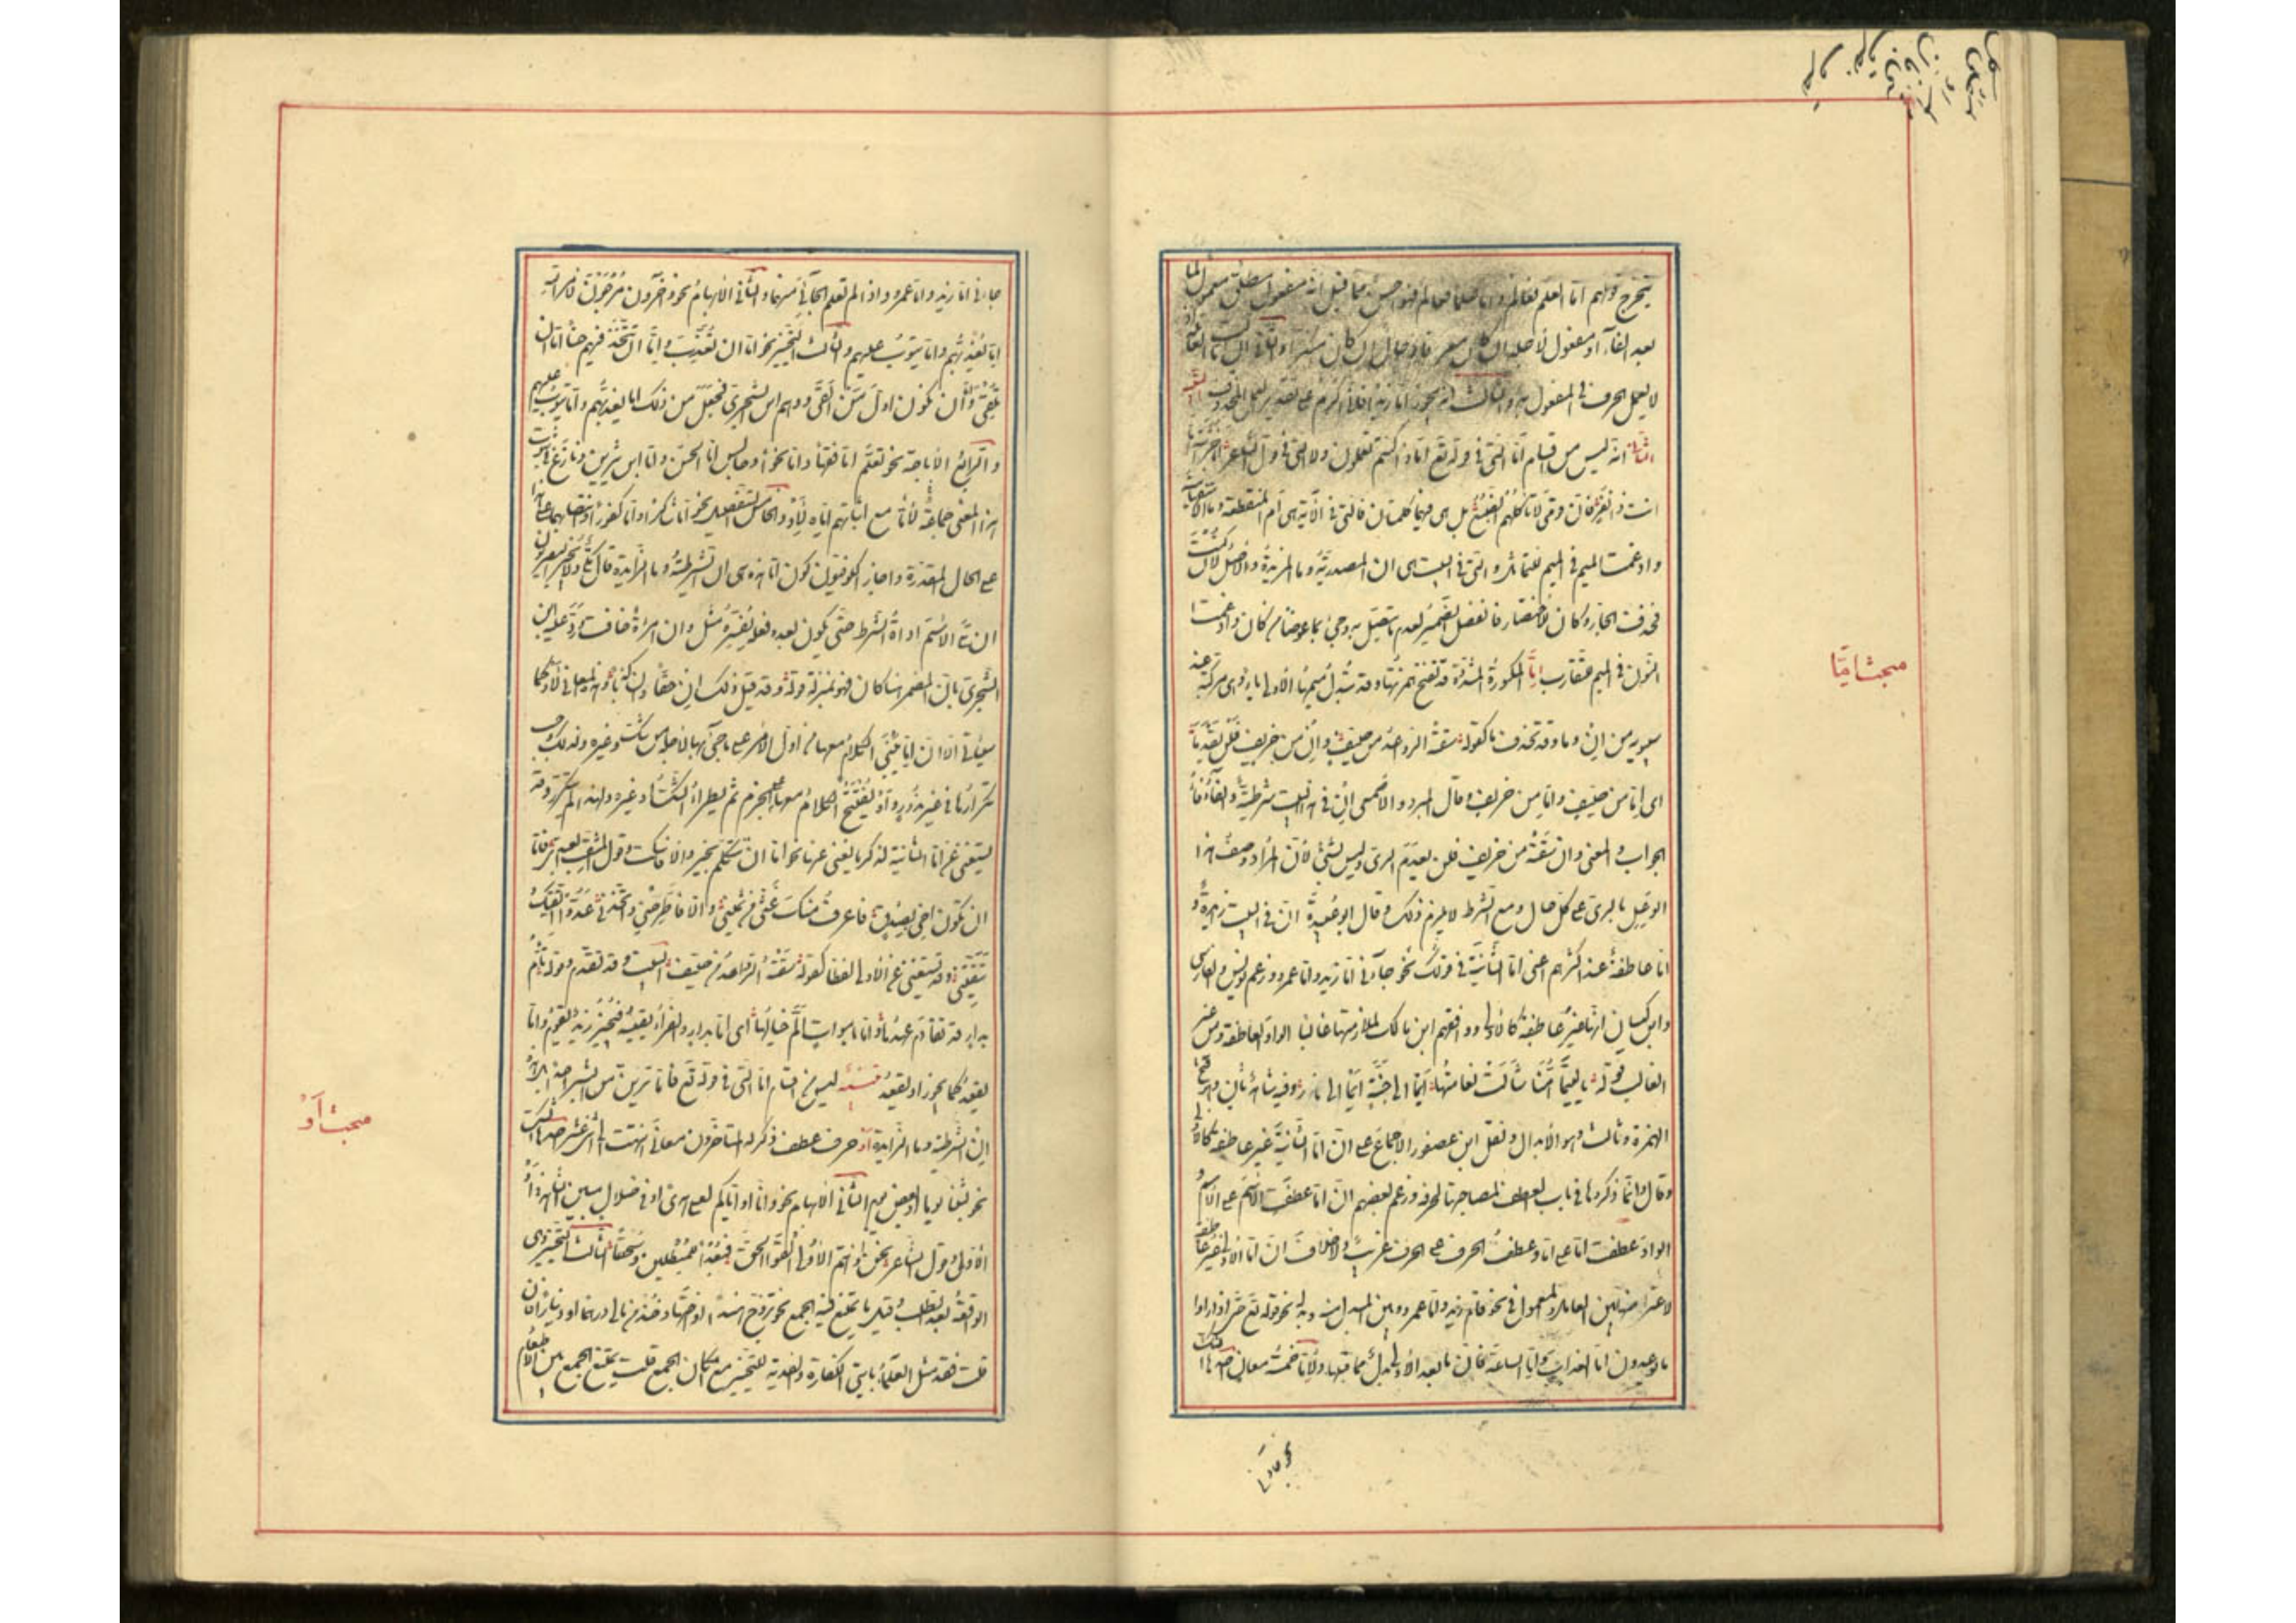 يتخرج قولهم اما العلم فعالم واما علما فعالم فهو احسن مما قيل انه مفعول مطلق معمول لما
بعد الفاء او مفعول لاجله ان كان معرفا وحال ان كان منكرا والثانى ان
لا يعمل الحرف فى المفعول به والثالث انه يجوز اما زيدا فانى اكرم على تقدير العمل للمحذوف
انه ليس من اقسام اما التى فى قوله تع اماذا كنتم تعملون ولا التى فى قول الشاعر ابا خراشة اما
انت ذا نفر فان قومى لم تاكلهم الضبع بل هى فيهما كلمتان فالتى فى الآية هى ام المنقطعة وما الاستفهامية
وادغمت الميم فى الميم للتماثل والتى فى البيت هى ان المصدرية وما المزيدة والاصل لان كنت
فحذفت الجار وكان للاختصار فانفصل الضمير لعدم ما يتصل به وجئ بما عوضا من كان وادغمت
النون فى الميم للتقارب اما المكسورة المشددة قد تفتح همزتها وقد تبدل ميمها الاولى ياء وهى مركبة عند
سيبويه من ان وما وقد تحذف ما كقوله سقته الرواعد من صيف وان من خريف فلن يعدما
اى اما من صيف واما من خريف وقال المبرد والاصمعى ان فى هذا البيت شرطية والفاء فاء
الجواب والمعنى وان سقته من خريف فلن يعدم الرى وليس بشئ لان المراد وصف هذا
الوعل بالرى على كل حال ومع الشرط لا يلزم ذلك وقال ابو عبيدة ان فى البيت زائدة و
اما عاطفة عند اكثرهم اعنى اما الثانية فى قولك نحو جاءنى اما زيد واما عمرو وزعم يونس والفارسى
وابن كيسان انها غير عاطفة كالاولى ووافقهم ابن مالك لملازمتها غالبا الواو العاطفة ومن غير
الغالب قوله يا ليتما امنا شالت نعامتها ايما الى جنة ايما الى نار وفيه شاهد ثان وهو فتح
الهمزة وثالث وهو الابدال ونقل ابن عصفور الاجماع على ان اما الثانية غير عاطفة كالاولى
وقال وانما ذكروها فى باب العطف لمصاحبتها لحرفه وزعم بعضهم ان اما عطفت الاسم على الاسم و
الواو عطفت اما على اما وعطف الحرف على الحرف غريب ولا خلاف ان اما الاولى غير عاطفة
لاعتراضها بين العامل والمعمول فى نحو قام اما زيد واما عمرو وبين المبدل منه وبدله نحو قوله تع حتى اذا راوا
ما يوعدون اما العذاب واما الساعة فان ما بعد الاولى بدل مما قبلها ولاما خمسة معان احدها الشك
نحو جاءنى
مبحث اما
جاءنى اما زيد واما عمرو واذا لم تعلم الجائى منهما والثانى الابهام نحو وآخرون مرجون لامر الله
اما يعذبهم واما يتوب عليهم والثالث التخيير نحو اما ان تعذب واما ان تتخذ فيهم حسنا اما ان
تلقى واما ان نكون اول من القى ووهم ابن الشجرى فجعل من ذلك اما يعذبهم واما يتوب عليهم
والرابع الاباحة نحو تعلم اما فقها واما نحوا وجالس اما الحسن واما ابن سيرين ونازع فى ثبوت
هذا المعنى جماعة لاما مع اثباتهم اياه لاو والخامس التفصيل نحو اما شاكرا واما كفورا وانتصابهما على هذا
على الحال المقدرة واجاز الكوفيون كون اما هذه هى ان الشرطية وما الزايدة قال مكى ولا يجيز البصريون
ان يلى الاسم اداة الشرط حتى يكون بعده فعل يفسره مثل وان امراة خافت ورد عليه ابن
الشجرى بان المضمر هنا كان فهو بمنزلة قوله قد قيل ذلك ان حقا وان كذبا وهذه المعانى لاو كما
سياتى الا ان اما يبنى الكلام معها من اول الامر على ما جئ بها لاجله من شك وغيره ولذلك وجب
تكرارها فى غير ندور واو يفتتح الكلام معها على الجزم ثم يطراء الشك او غيره ولهذا لم يتكرر وقد
يستغنى عن اما الثانية بذكر ما يغنى عنها نحو اما ان تتكلم بخير والا فاسكت وقول المثقب العبدى فاما
ان تكون اخى بصدق فاعرف منك غثى من سمينى والا فاطرحنى واتخذنى عدوا اتقيك و
تتقينى وقد يستغنى عن الاولى لفظا كقوله سقته الرواعد من صيف البيت وقد تقدم وقوله تلم
بدار قد تقادم عهدها واما باموات الم خيالها اى اما بدار والفراء يقيسه فيجيز زيد يقوم واما
يقعد كما يجوز او يقعد تنبيه ليس من اقسام اما التى فى قوله تع فاما ترين من البشر احدا بل هذه
ان الشرطية وما الزايدة او حرف عطف ذكر له المتاخرون معانى انتهت الى اثنى عشر احدها الشك
نحو لبثنا يوما او بعض يوم الثانى الابهام نحو وانا او اياكم لعلى هدى او فى ضلال مبين الشاهد فى او
الاولى وقول الشاعر نحن او انتم الاولى الفوا الحق فبعدا للمبطلين وسحقا الثالث التخيير وهى
الواقعة بعد الطلب وقبل ما يمتنع فيه الجمع نحو تزوج هندا او اختها وخذ من مالى درهما او دينارا فان
قلت فقد مثل العلماء بايتى الكفارة والفدية للتخيير مع امكان الجمع قلت يمتنع الجمع بين الاطعام
مبحث او